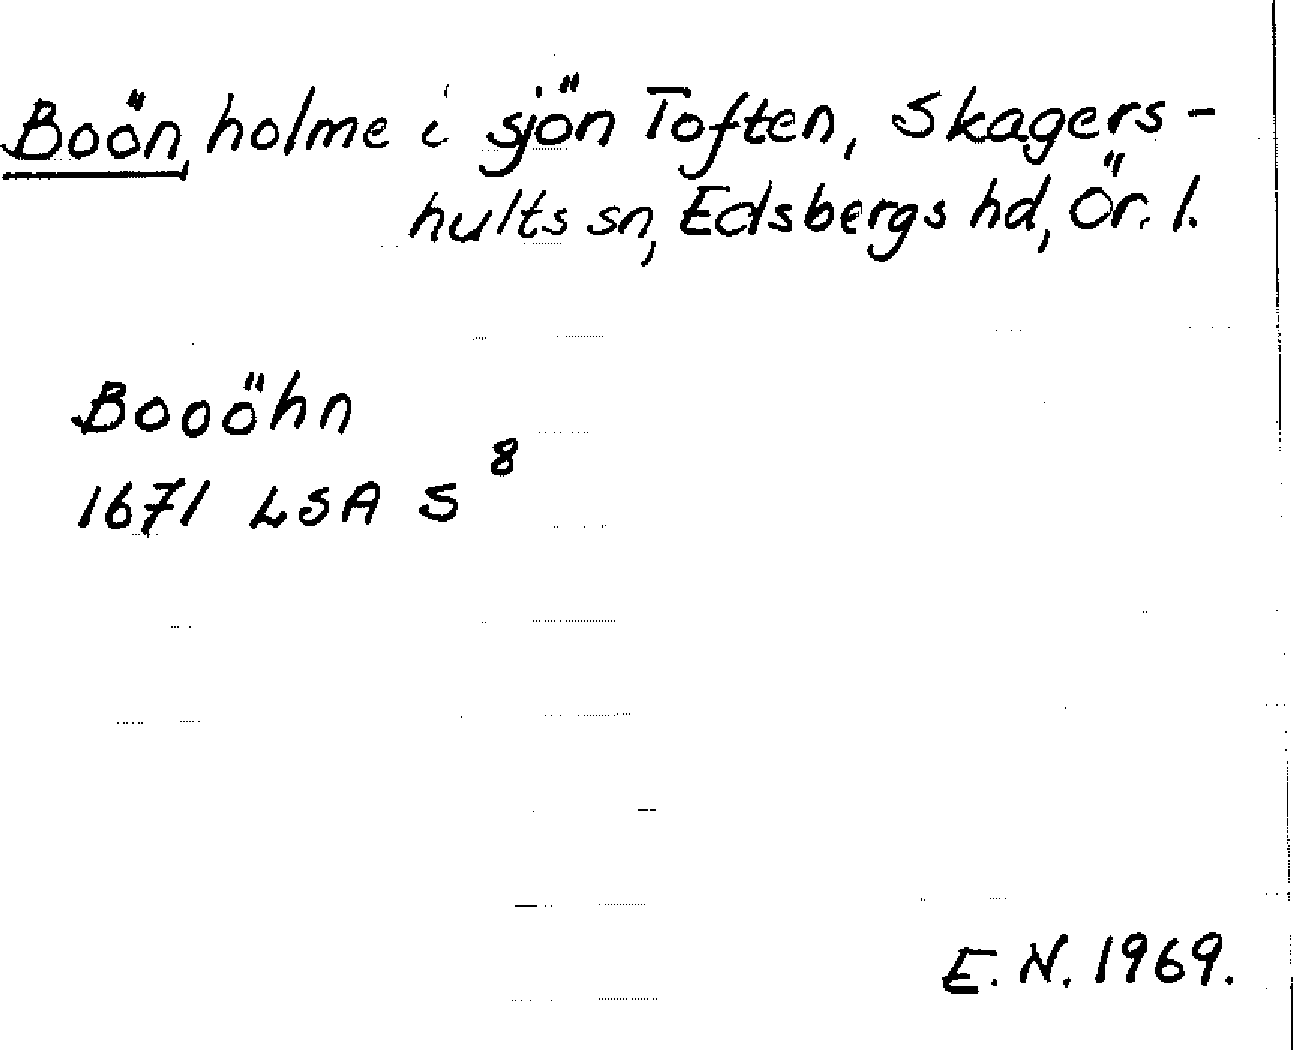 Boön, holme i sjön Toften, Skagers-
hults sn, Edsbergs hd, Ör. l.
Booöhn
1671 LSA S 8
E. N. 1969.